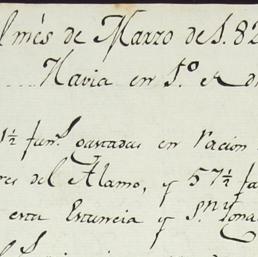 l més de Marzo de 182
Havia en 1.º de d
1½ fan.s gastadas en racion
res del Alamo, y 57½ fa
esta Estancia y S.n Igna